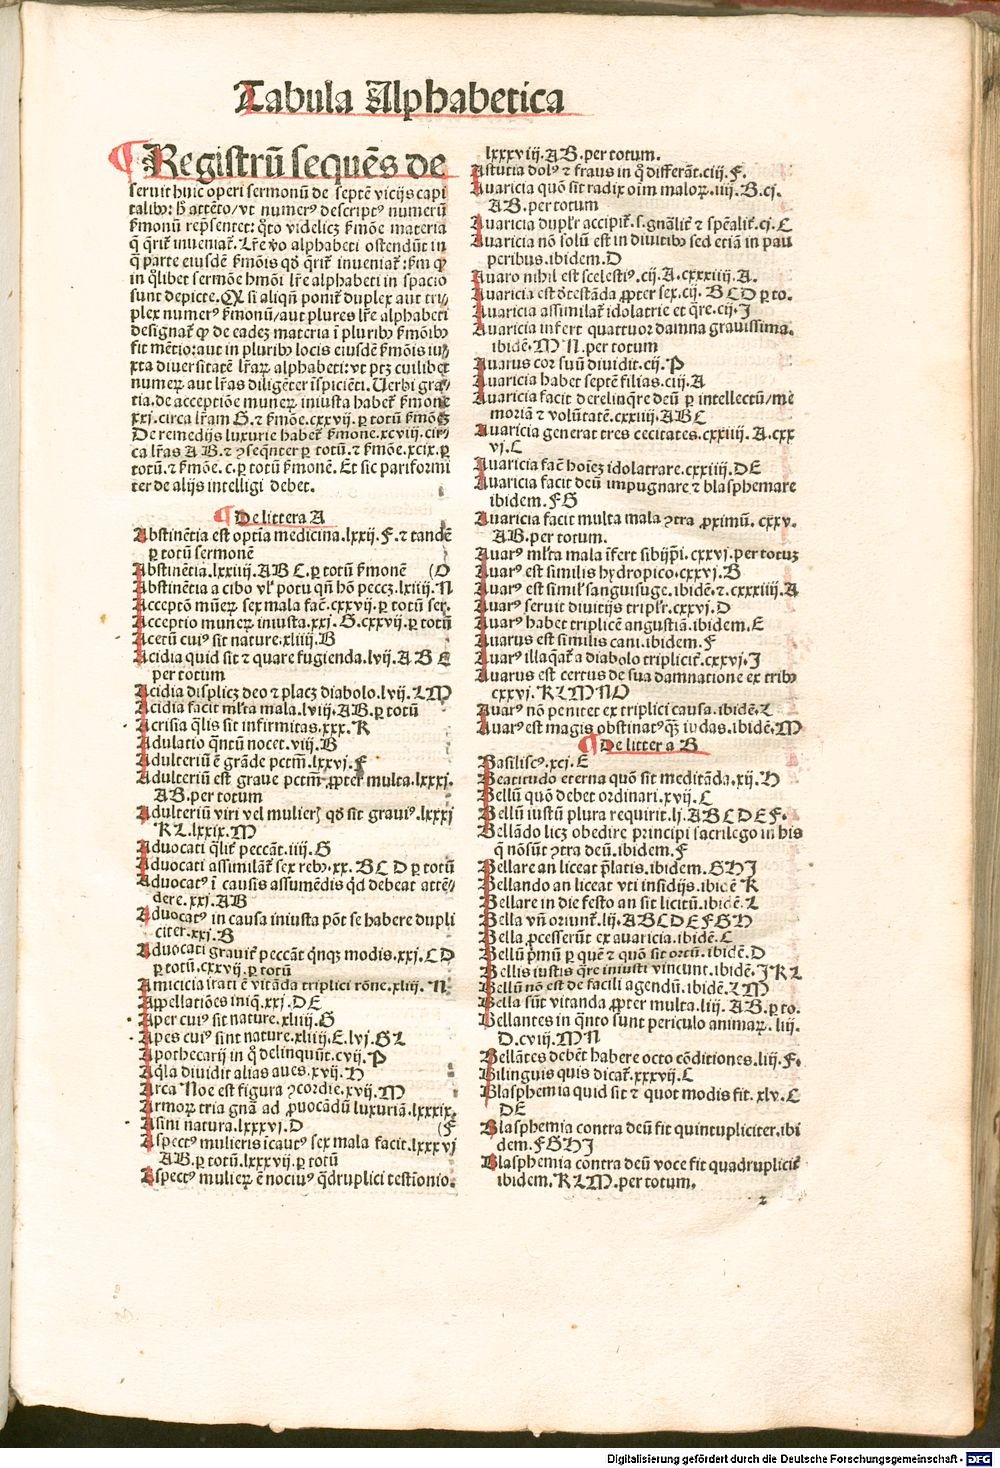 Tabula Alphabetica
Registrū sequēs de
seruit huic operi sermonū de septē vicijs capi
talibꝰ: hͦ attēto/vt numerꝰ descriptꝰ numerū
ẜmonū rep̄sentet: q̄to videlicꝫ ẜmōe materia
q̄ q̄rit̄ inueniat̄. Lr̄e v̄o alphabeti ostendūt in
q̄ parte eiusdē ẜmōis qd̄ q̄rit̄ inueniat̄: ẜm ꝙ
in q̄libet sermōe hmōi lr̄e alphabeti in spacio
sunt depicte. Q̄ si aliqn̄ ponit̄ duplex aut tri/
plex numerꝰ ẜmonū/aut plures lr̄e alphabeti
designat̄ ꝙ de eadeꝫ materia ī pluribꝰ ẜmōibꝰ
fit mētio: aut in pluribꝰ locis eiusdē ẜmōis iu/
xta diuersitatē lr̄aꝝ alphabeti: vt ptꝫ cuilibet
numeꝝ aut lr̄as diligēter īspiciēti. Uerbi gra/
tia. de acceptiōe muneꝝ iniusta habet̄ ẜmone
xxj. circa lr̄am G. ⁊ ẜmōe. cxxvij. ꝑ totū ẜmōeꝫ
De remedijs luxurie habet̄ ẜmone. xcviij. cir/
ca lr̄as A B. ⁊ ꝯseqn̄ter ꝑ totū. ⁊ ẜmōe. xcix. ꝑ
totū. ⁊ ẜmōe. c. ꝑ totū ẜmonē. Et sic pariformi
ter de alijs intelligi debet.
De littera A
Abstinētia est optīa medicina. lxxij. F. ⁊ tandē
ꝑ totū sermonē
Abstinētia. lxxiiij. A B C. ꝑ totū ẜmonē (O
Abstinētia a cibo vl̓ potu qn̄ hō peccꝫ. lxiiij. N
Acceptō mūeꝝ sex mala fac̄. cxxvij. ꝑ totū ser.
Acceptio muneꝝ iniusta. xxj. G. cxxvij. ꝑ totū
Acetū cuiꝰ sit nature. xliiij. B
Acidia quid sit ⁊ quare fugienda. lvij. A B E
per totum
Acidia displicꝫ deo ⁊ placꝫ diabolo. lvij. L M
Acidia facit ml̓ta mala. lviij. A B. ꝑ totū
Acrisia q̄lis sit infirmitas. xxx. K
Adulatio q̄ntū nocet. viij. B
Adulteriū ē grāde pctm̄. lxxvj. F
Adulteriū est graue pctm̄ ꝓpter multa. lxxxj.
A B. per totum
Adulteriū viri vel mulierꝫ qd̄ sit grauiꝰ. lxxxj
K L. lxxix. M
Aduocati q̄lit̄ peccāt. iiij. G
Aduocati assimilāt̄ sex rebꝰ. xx. B C D ꝑ totū
Aduocatꝰ ī causis assumēdis qd̄ debeat attē/
dere. xxj. A B
Aduocatꝰ in causa iniusta pōt se habere dupli
citer. xxj. B
Aduocati grauit̄ peccāt qn̄qꝫ modis. xxj. C D
ꝑ totū. cxxvij. ꝑ totū
Amicicia irati ē vitāda triplici rōne. xliij. N
Appellatiōes iniq̄. xxj. D E
Aper cuiꝰ sit nature. xliiij. G
Apes cuiꝰ sint nature. xliiij. E. lvj. G L
Apothecarij in q̄ delinquūt. cvij. P
Aq̄la diuidit alias aues. xvij. H
Arca Noe est figura ꝯcordie. xvij. M
Armoꝝ tria gn̄a ad ꝓuocādū luxuriā. lxxxix.
Asini natura. lxxxvj. D (F
Aspectꝰ mulieris īcautꝰ sex mala facit. lxxxvj
A B. ꝑ totū. lxxxvij. ꝑ totū
Aspectꝰ mulieꝝ ē nociuꝰ q̄druplici testīonio.
lxxxviij. A B. per totum.
Astutia dolꝰ ⁊ fraus in q̄ differāt. ciij. F.
Auaricia quō sit radix oīm maloꝝ. iiij. B. cj.
A B. per totum
Auaricia duplr̄ accipit̄. s. gn̄alit̄ ⁊ sp̄ealit̄. cj. C
Auaricia nō solū est in diuitibꝰ sed etiā in pau
peribus. ibidem. D
Auaro nihil est scelestiꝰ. cij. A. cxxxiiij. A.
Auaricia est ōtestāda ꝓpter sex. cij. B C D ꝑ to.
Auaricia assimilat̄ idolatrie et q̄re. cij. I
Auaricia infert quattuor damna grauissima.
ibidē. M N. per totum
Auarus cor suū diuidit. cij. P
Auaricia habet septē filias. ciij. A
Auaricia facit derelinq̄re deū ꝑ intellectū/me
moriā ⁊ volūtatē. cxxiiij. A B C
Auaricia generat tres cecitates. cxxiiij. A. cxx
vj. C
Auaricia fac̄ hoīeꝫ idolatrare. cxxiiij. D E
Auaricia facit deū impugnare ⁊ blasphemare
ibidem. F G
Auaricia facit multa mala ꝯtra ꝓximū. cxxv.
A B. per totum.
Auarꝰ ml̓ta mala īfert sibijp̄i. cxxvj. per totuꝫ
Auarꝰ est similis hydropico. cxxvj. B
Auarꝰ est simil̓ sanguisuge. ibidē. ⁊. cxxxiiij. A
Auarꝰ seruit diuitijs triplr̄. cxxvj. D
Auarꝰ habet triplicē angustiā. ibidem. E
Auarus est similis cani. ibidem. F
Auarꝰ illaq̄at̄ a diabolo triplicit̄. cxxvj. I
Auarus est certus de sua damnatione ex tribꝰ
cxxvj. K L M N O
Auarꝰ nō penitet ex triplici causa. ibidē. L
Auarꝰ est magis obstinatꝰ qꝫ iudas. ibidē. M
De littera B
Basiliscꝰ. xcj. E
Beatitudo eterna quō sit meditāda. xij. H
Bellū quō debet ordinari. xvij. C
Bellū iustū plura requirit. lj. A B C D E F.
Bellādo licꝫ obedire principi sacrilego in his
q̄ nō sūt ꝯtra deū. ibidem. F
Bellare an liceat p̄latis. ibidem. G H I
Bellando an liceat vti insidijs. ibidē K
Bellare in die festo an sit licitū. ibidē. L
Bella vn̄ oriunt̄. lij. A B C D E F G H
Bella ꝓcesserūt ex auaricia. ibidē. C
Bellū p̄mū ꝑ quē ⁊ quō sit ortū. ibidē. D
Bellis iustis q̄re iniusti vincunt. ibidē. I K L
Bellū nō est de facili agendū. ibidē. L M
Bella sūt vitanda ꝓpter multa. liij. A B. ꝑ to.
Bellantes in q̄nto sunt periculo animaꝝ. liij.
D. cviij. M N
Bellātes debēt habere octo cōditiones. liij. F.
Bilinguis quis dicat̄. xxxvij. C
Blasphemia quid sit ⁊ quot modis fit. xlv. C
D E
Blasphemia contra deū fit quintupliciter. ibi
dem. F G H I
Blasphemia contra deū voce fit quadruplicit̄
ibidem. K L M. per totum.
2
Digitalisierung gefördert durch die Deutsche Forschungsgemeinschaft - DFG